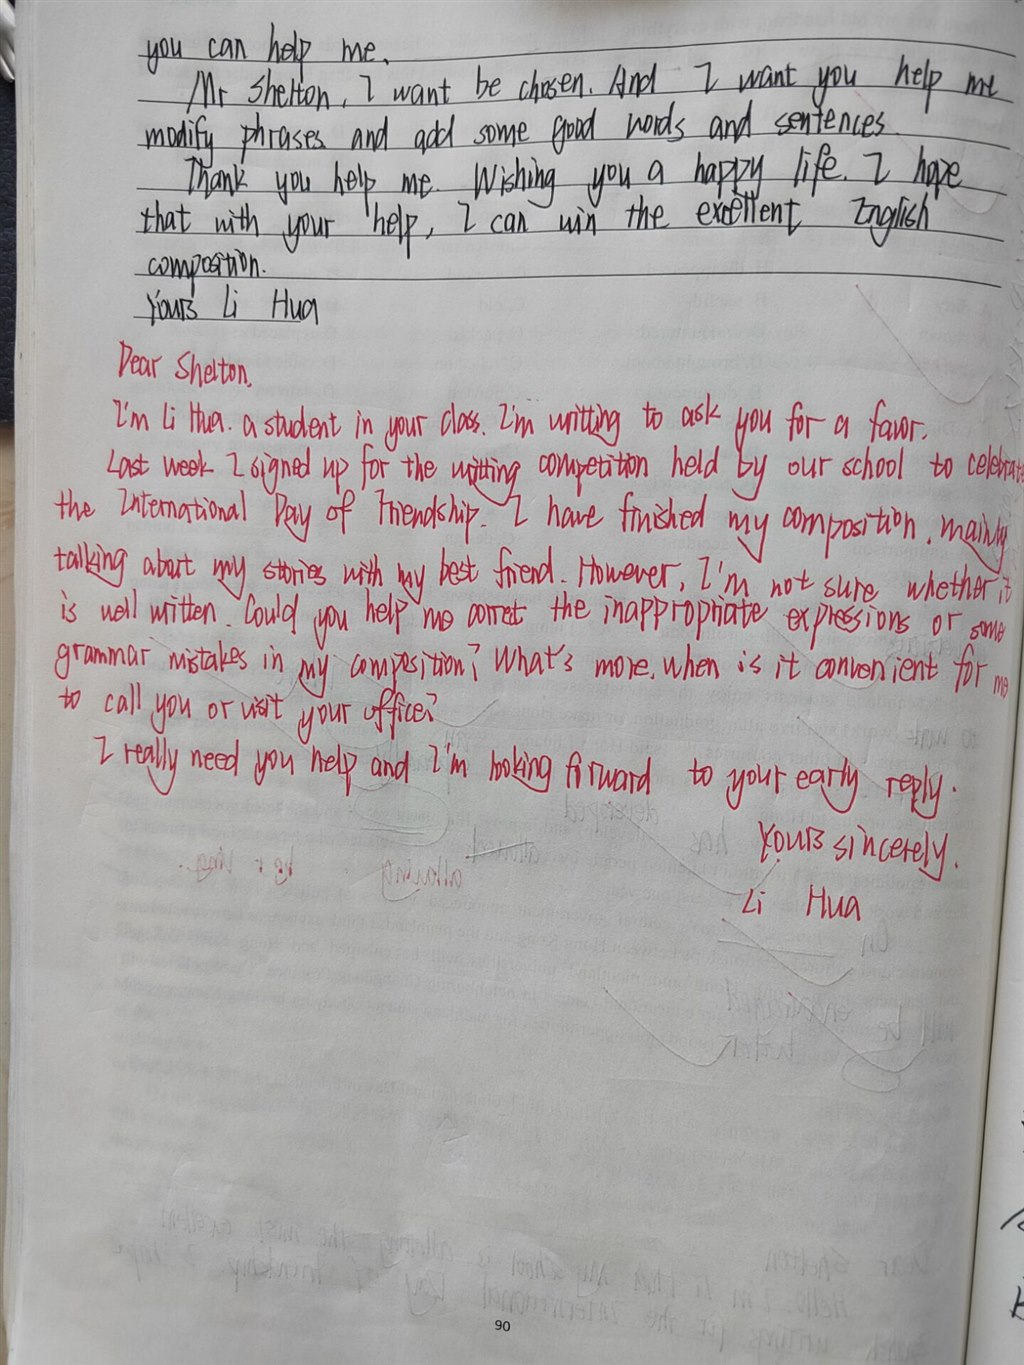 you can help me.
Mr Shelton, I want be chosen. And I want you help me
modify phrases and add some good words and sentences
Thank you help me. Wishing you a happy life. I hope
that with your help, I can win the excellent English
composition.
Yours Li Hua
Dear Shelton,
I'm Li Hua. a student in your class. I'm writting to ask you for a favor.
Last week I signed up for the writting competition held by our school to celebrate
the International Day of Friendship. I have finished my composition, mainly
talking about my stories with my best friend. However, I'm not sure whether it
is well written. Could you help me correct the inappropriate expressions or some
grammar mistakes in my composition? What's more, when is it convenient for me
to call you or visit your office?
I really need you help and I'm looking forward to your early reply.
Yours sincerely.
Li Hua
90